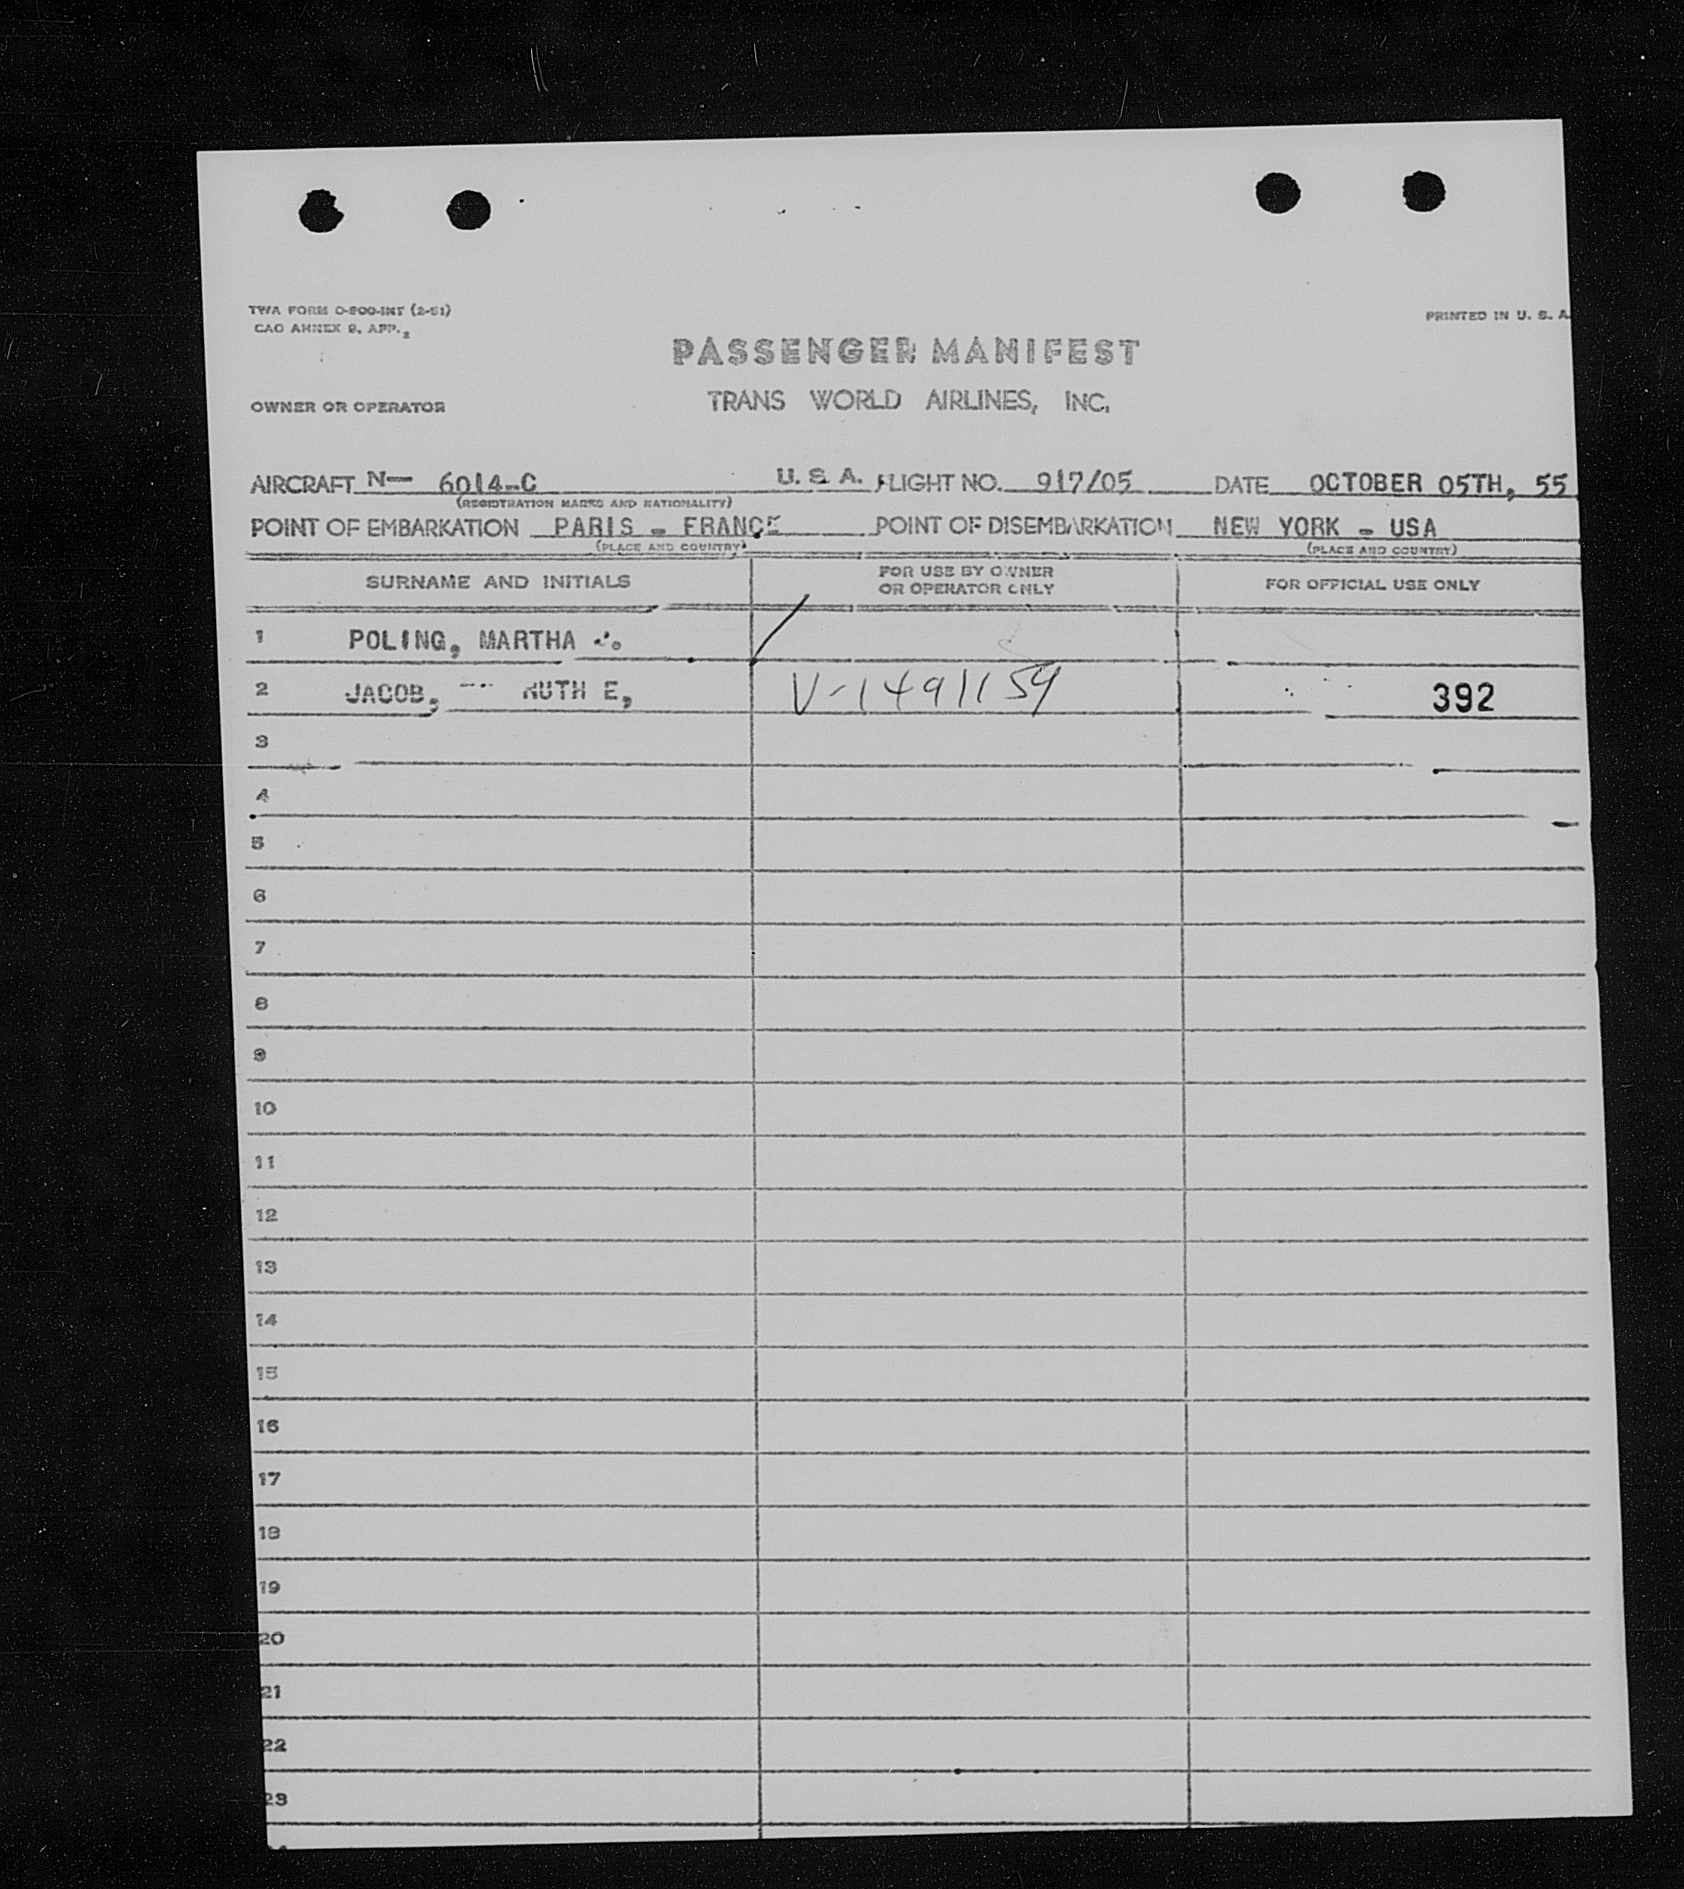 TWA FORM O-800-INT (2-51)
CAO ANNEX 9, APP. 2
PRINTED IN U. S. A.
PASSENGER MANIFEST
OWNER OR OPERATOR TRANS WORLD AIRLINES, INC.
AIRCRAFT N— 6014-C U. S. A. FLIGHT NO. 917/05 DATE OCTOBER 05TH, 55
(REGISTRATION MARKS AND NATIONALITY)
POINT OF EMBARKATION PARIS - FRANCE POINT OF DISEMBARKATION NEW YORK - USA
(PLACE AND COUNTRY) (PLACE AND COUNTRY)
SURNAME AND INITIALS FOR USE BY OWNER OR OPERATOR ONLY FOR OFFICIAL USE ONLY
1 POLING, MARTHA
2 JACOB, RUTH E, V-1491159 392
3
4
5
6
7
8
9
10
11
12
13
14
15
16
17
18
19
20
21
22
23